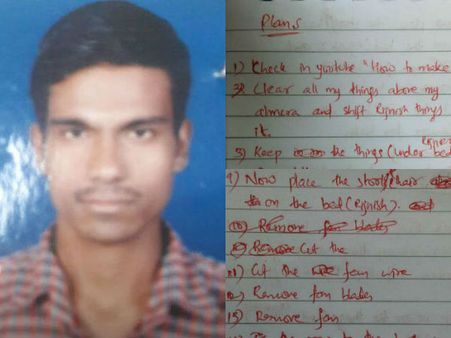 Plans
1) Check in youtube "How to make
3) Clear all my things above my
almora and shift Rijnish things
it.
5) Keep the things (under bed
9) Now place the stool/chair
on the bed (Rijnish).
10) Remove fan blades
Remove Cut the
11) Cut the fan wire
12) Remove fan blades
13) Remove fan